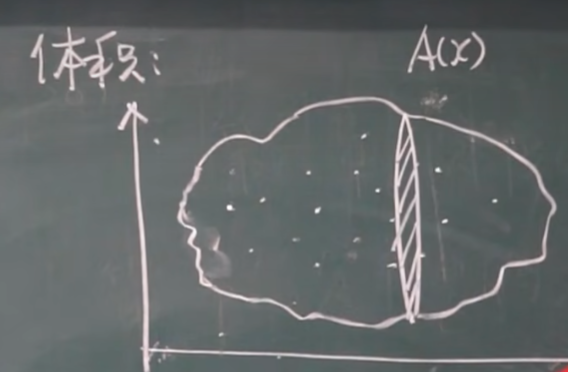 体积:
A(x)